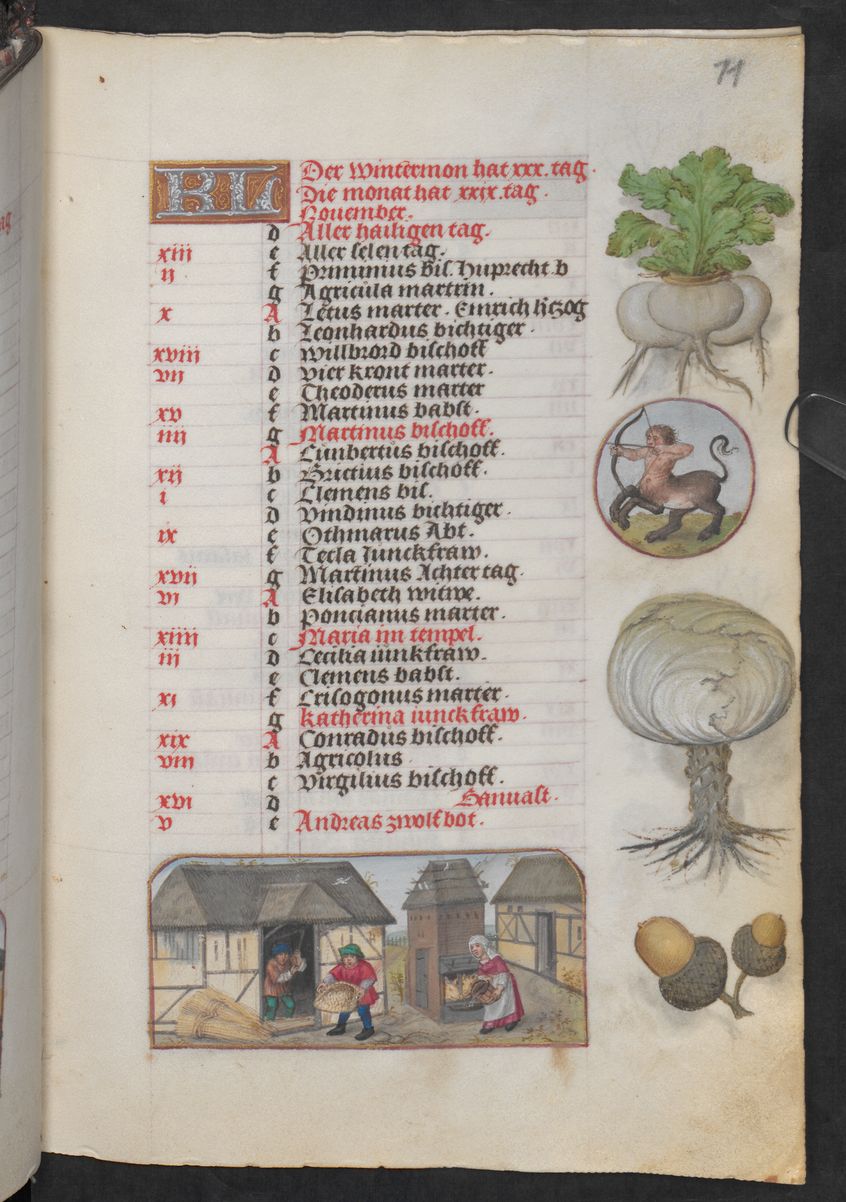 11
KL Der Wintermon hat xxx. tag.
Die monat hat xxix. tag.
Nouember.
d Aller hailigen tag.
xiii e Aller selen tag.
ij f Primimus bis. Huprecht b
g Agricula martrin.
x A Letus marter. Emrich
b Leonhardus bichtiger.
xviii c Willbrord bischoff
vij d Vier kront marter.
e Theoderus marter
xv f Martinus babst.
iiij g Martinus bischoff.
A Cunbertus bischoff.
xij b Brictius bischoff.
i c Clemens bis.
d Vindinus bichtiger.
ix e Othmarus Abt.
f Tecla Junckfraw.
xvij g Martinus Achter tag.
vi A Elisabeth witwe.
b Poncianus marter.
xiiij c Maria im tempel.
iij d Cecilia iunkfraw.
e Clemens babst.
xi f Crisogonus marter.
g Katherina iunckfraw.
xix A Conradus bischoff.
viij b Agricolus.
c Virgilius bischoff.
xvi d Banuast.
v e Andreas zwolfbot.